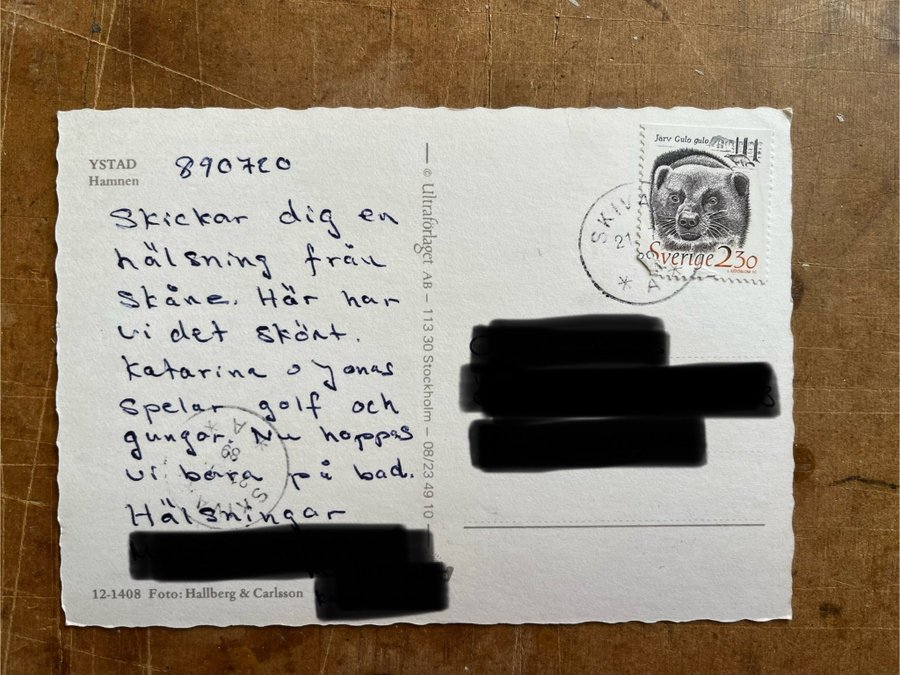 YSTAD
Hamnen
890720
Skickar dig en
hälsning från
Skåne. Här har
vi det skönt.
Katarina o Jonas
spelar golf och
gungar. Nu hoppas
vi bara på bad.
Hälsningar
12-1408 Foto: Hallberg & Carlsson
© Ultraförlaget AB – 113 30 Stockholm – 08/23 49 10 –
Järv Gulo gulo
Sverige 2.30
SKIVA
21
* A *
A *
89